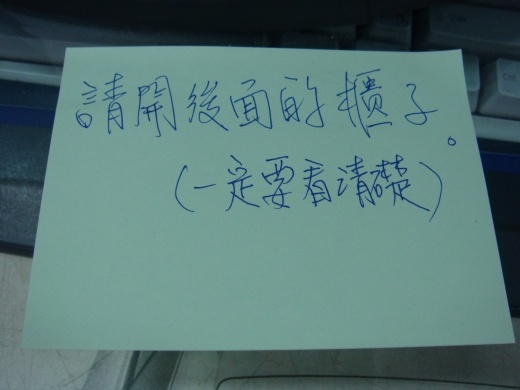 請開後面的櫃子。
(一定要看清礎)